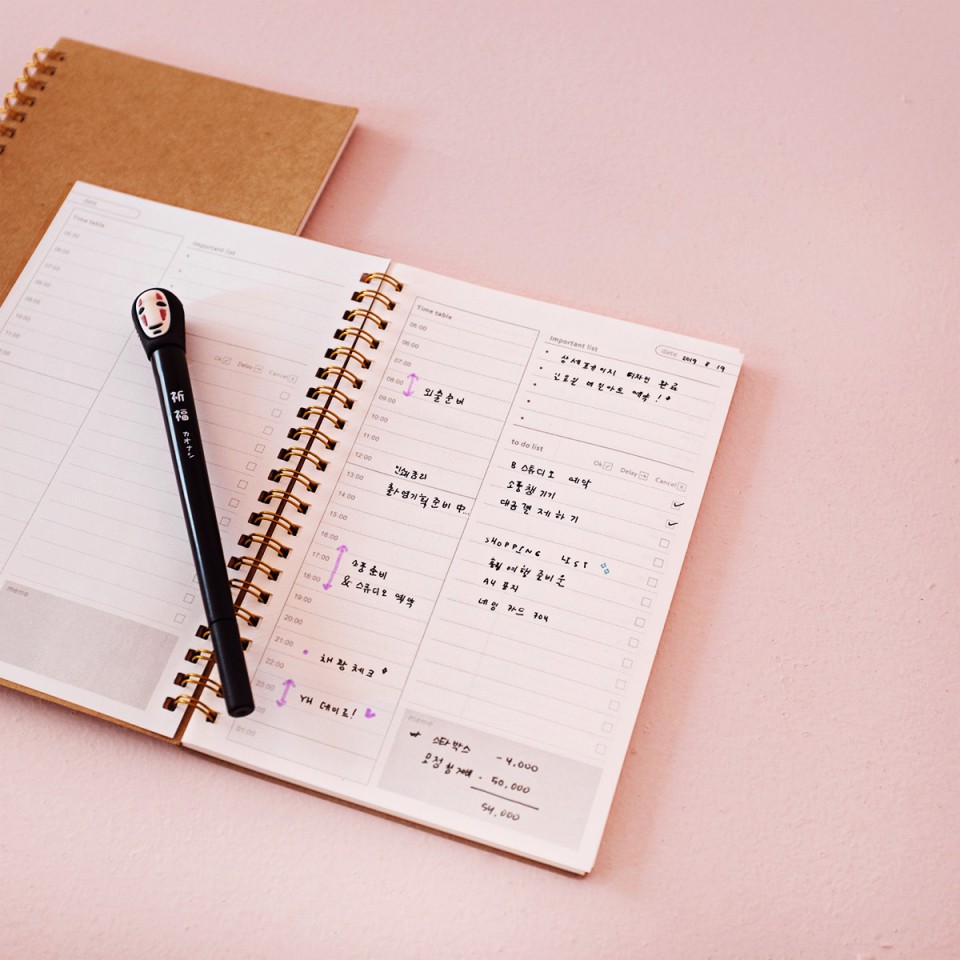 date
Time table
05:00
06:00
07:00
08:00
09:00
10:00
11:00
important list
Ok Delay Cancel
memo
祈福
カオナシ
Time table
05:00
06:00
07:00
08:00
외출준비
09:00
10:00
11:00
12:00
13:00
인쇄 정리
14:00
촬영기획 준비 中..
15:00
16:00
17:00
소품준비
18:00
& 스튜디오 예약
19:00
20:00
21:00
채팡 체크
22:00
23:00
YH 데이트!
01:00
important list
date 2019 8 19
상세페이지 디자인 완료
네일아트 예약!
to do list
Ok Delay Cancel
B 스튜디오 예약
소품챙기기
대금결제하기
SHOPPING LIST
여행 준비물
A4 용지
네임 카드 70매
memo
스타벅스 -4,000
모정형 - 50,000
54,000